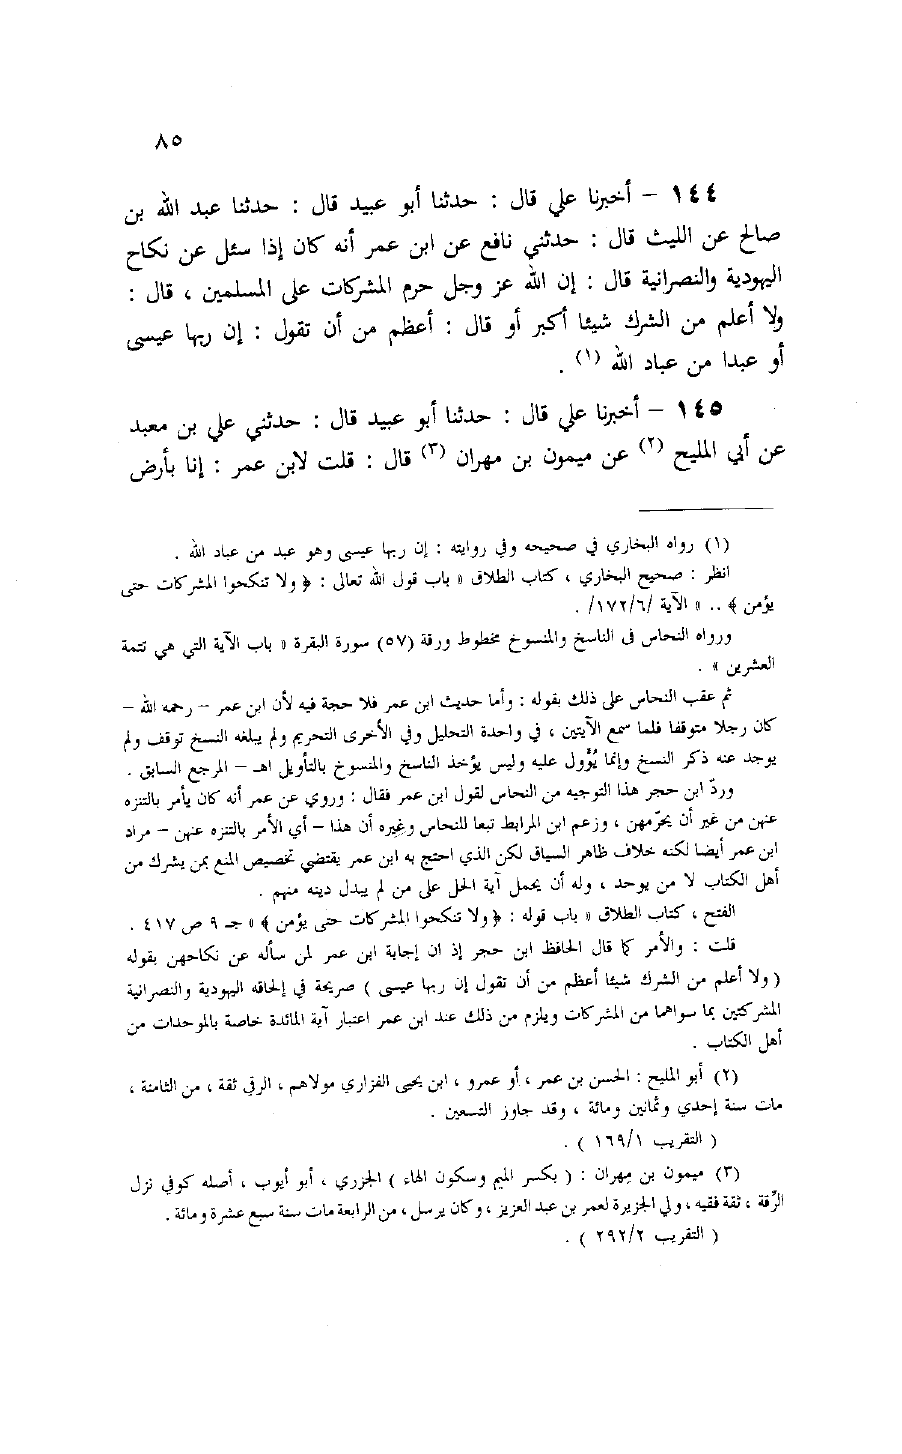 ٨٥
١٤٤ – أخبرنا علي قال : حدثنا أبو عبيد قال : حدثنا عبد الله بن
صالح عن الليث قال : حدثني نافع عن ابن عمر أنه كان إذا سئل عن نكاح
اليهودية والنصرانية قال : إن الله عز وجل حرم المشركات على المسلمين ، قال :
ولا أعلم من الشرك شيئا أكبر أو قال : أعظم من أن تقول : إن ربها عيسى
أو عبدا من عباد الله (١) .
١٤٥ – أخبرنا علي قال : حدثنا أبو عبيد قال : حدثني علي بن معبد
عن أبي المليح (٢) عن ميمون بن مهران (٣) قال : قلت لابن عمر : إنا بأرض
(١) رواه البخاري في صحيحه وفي روايته : إن ربها عيسى وهو عبد من عباد الله .
انظر : صحيح البخاري ، كتاب الطلاق « باب قول الله تعالى : ﴿ ولا تنكحوا المشركات حتى
يؤمن ﴾ .. » الآية /١٧٢/٦/ .
ورواه النحاس فى الناسخ والمنسوخ مخطوط ورقة (٥٧) سورة البقرة « باب الآية التي هي تتمة
العشرين » .
ثم عقب النحاس على ذلك بقوله : وأما حديث ابن عمر فلا حجة فيه لأن ابن عمر – رحمه الله –
كان رجلا متوقفا فلما سمع الآيتين ، في واحدة التحليل وفي الأخرى التحريم ولم يبلغه النسخ توقف ولم
يوجد عنه ذكر النسخ وإنما يُؤَول عليه وليس يؤخذ الناسخ والمنسوخ بالتأويل اهـ – المرجع السابق .
وردّ ابن حجر هذا التوجيه من النحاس لقول ابن عمر فقال : وروي عن عمر أنه كان يأمر بالتنزه
عنهن من غير أن يحرّمهن ، وزعم ابن المرابط تبعا للنحاس وغيره أن هذا – أي الأمر بالتنزه عنهن – مراد
ابن عمر أيضا لكنه خلاف ظاهر السياق لكن الذي احتج به ابن عمر يقتضي تخصيص المنع بمن يشرك من
أهل الكتاب لا من يوحد ، وله أن يحمل آية الحل على من لم يبدل دينه منهم .
الفتح ، كتاب الطلاق « باب قوله : ﴿ ولا تنكحوا المشركات حتى يؤمن ﴾ » جـ ٩ ص ٤١٧ .
قلت : والأمر كما قال الحافظ ابن حجر إذ ان إجابة ابن عمر لمن سأله عن نكاحهن بقوله
( ولا أعلم من الشرك شيئا أعظم من أن تقول إن ربها عيسى ) صريحة في إلحاقه اليهودية والنصرانية
المشركتين بما سواهما من المشركات ويلزم من ذلك عند ابن عمر اعتبار آية المائدة خاصة بالموحدات من
أهل الكتاب .
(٢) أبو المليح : الحسن بن عمر ، أو عمرو ، ابن يحيى الفزاري مولاهم ، الرقي ثقة ، من الثامنة ،
مات سنة إحدي وثمانين ومائة ، وقد جاوز التسعين .
( التقريب ١٦٩/١ ) .
(٣) ميمون بن مِهران : ( بكسر الميم وسكون الهاء ) الجزري ، أبو أيوب ، أصله كوفي نزل
الرَّقة ، ثقة فقيه ، ولي الجزيرة لعمر بن عبد العزيز ، وكان يرسل ، من الرابعة مات سنة سبع عشرة ومائة .
( التقريب ٢٩٢/٢ ) .